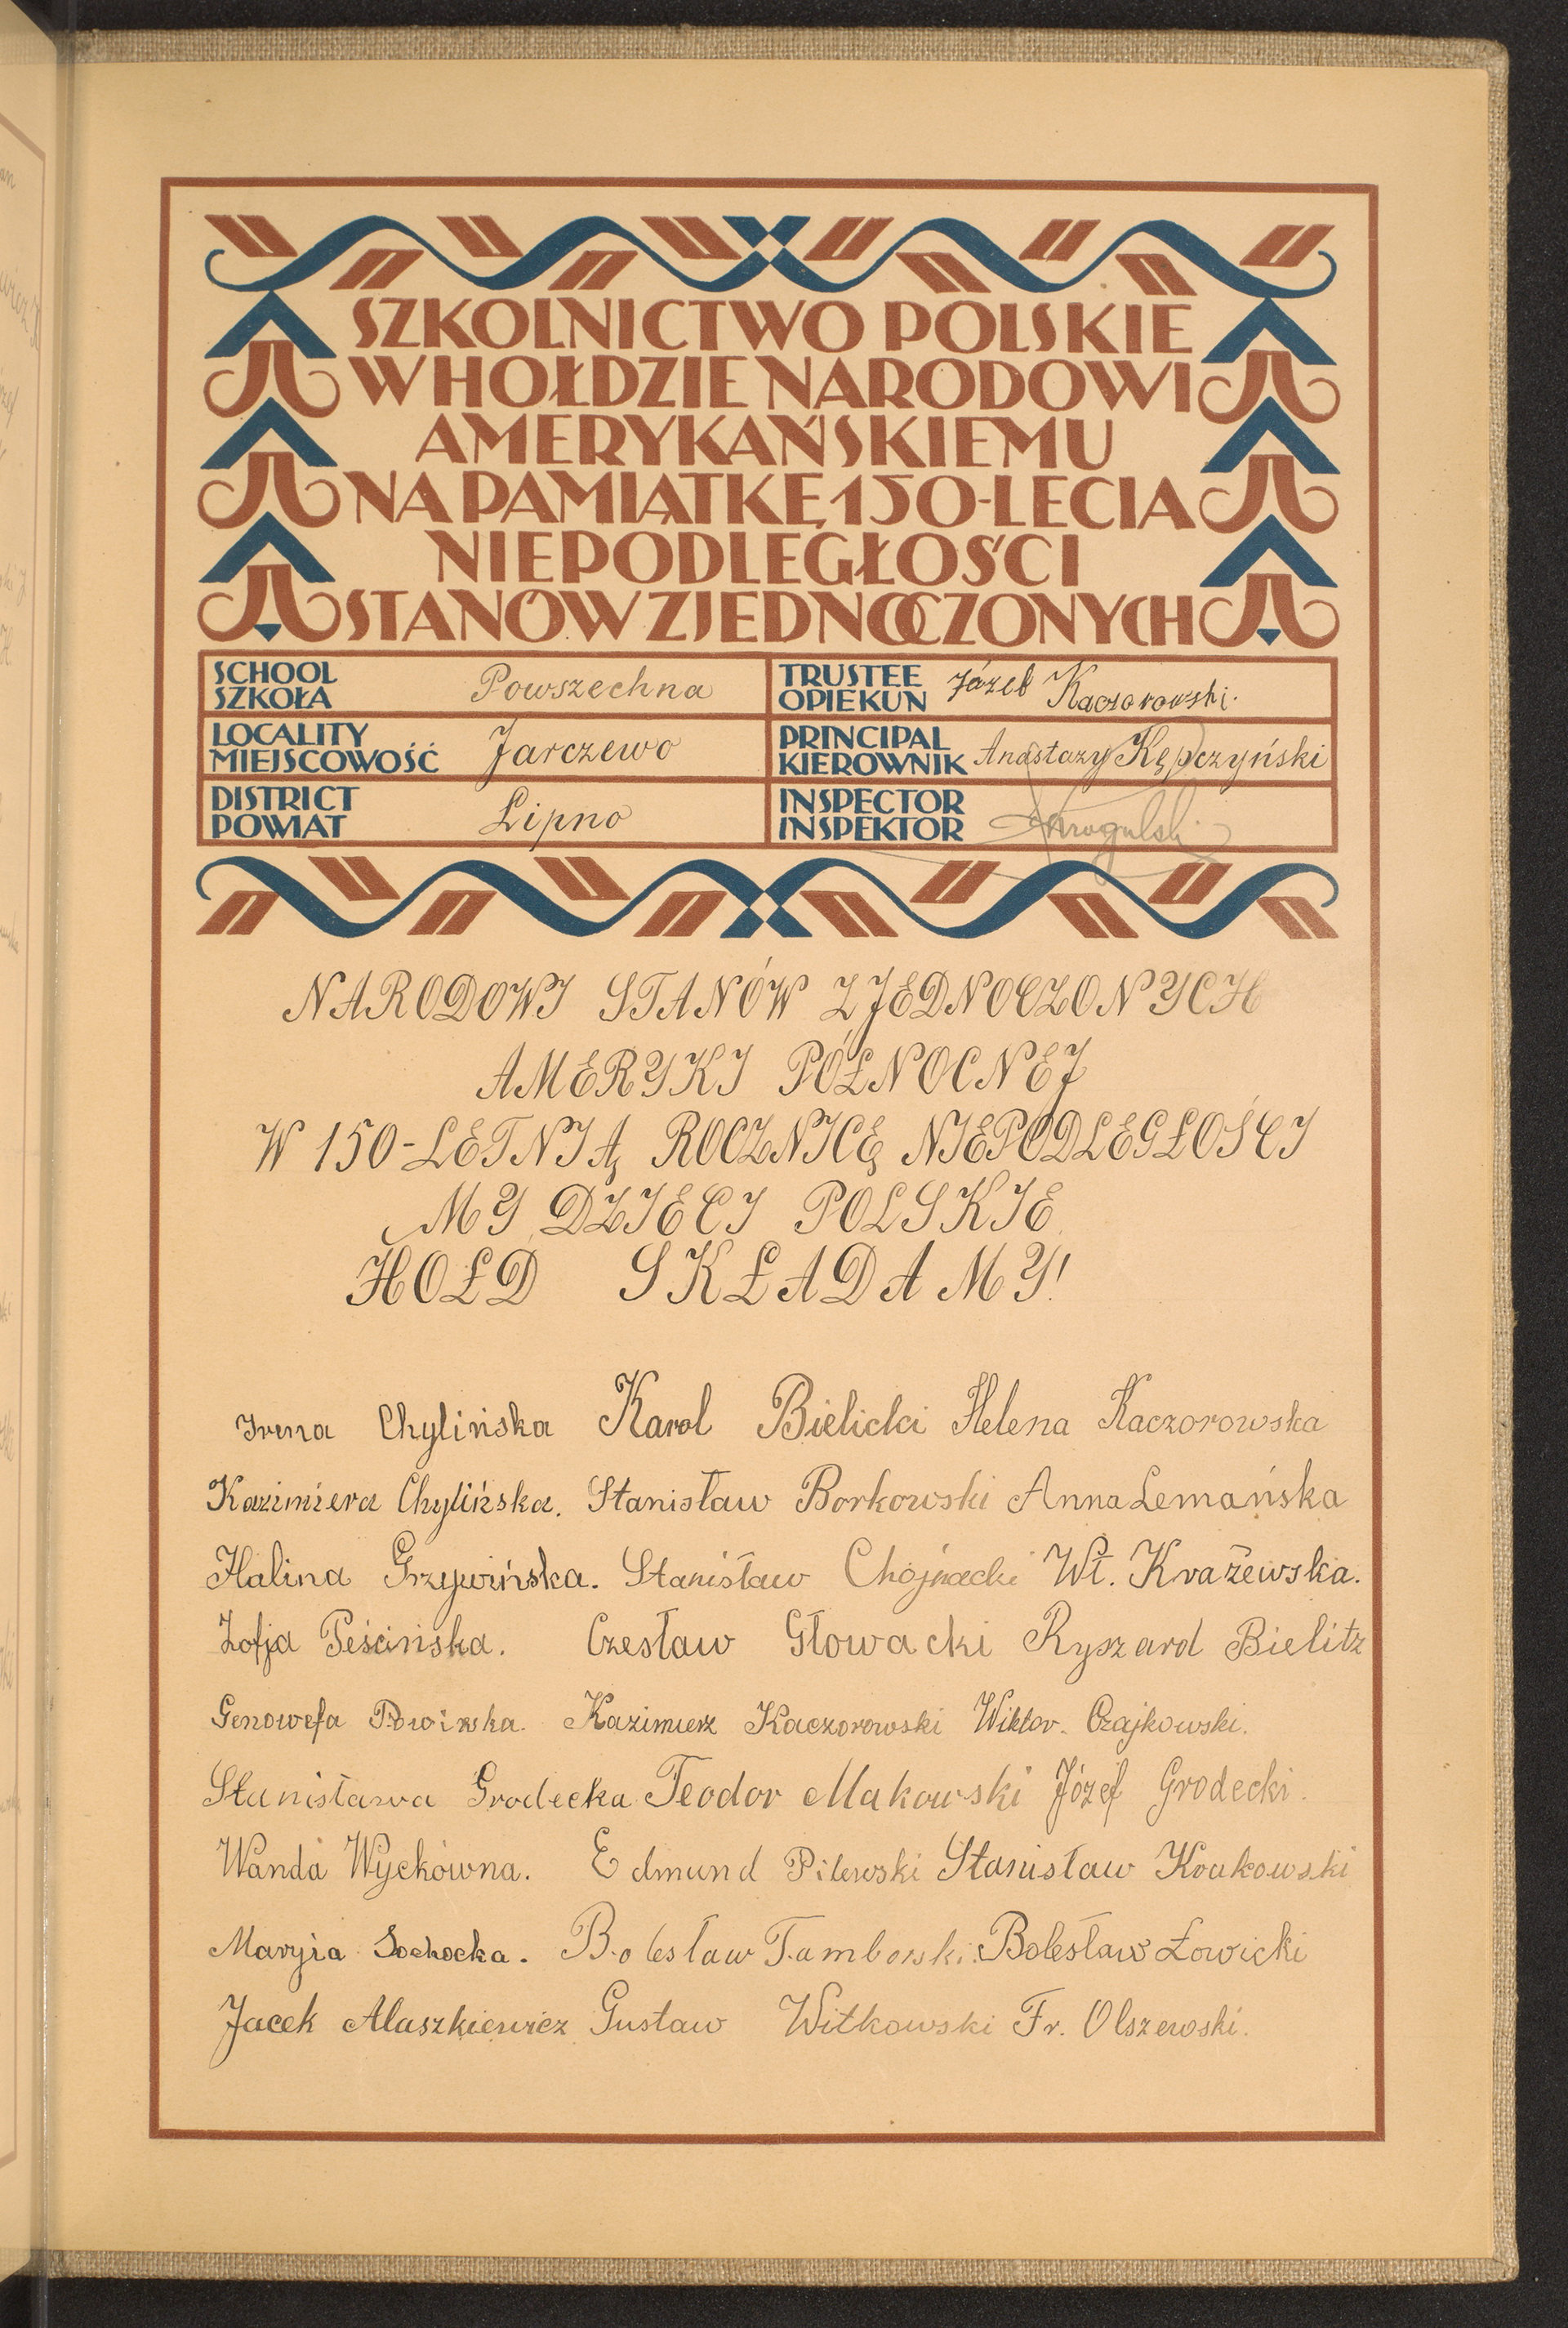 SZKOLNICTWO POLSKIE
W HOŁDZIE NARODOWI
AMERYKAŃSKIEMU
NA PAMIĄTKĘ 150-LECIA
NIEPODLEGŁOŚCI
STANÓW ZJEDNOCZONYCH
SCHOOL
SZKOŁA
Powszechna
TRUSTEE
OPIEKUN
Józef Kaczorowski.
LOCALITY
MIEJSCOWOŚĆ
Jarczewo
PRINCIPAL
KIEROWNIK
Anastazy Kępczyński
DISTRICT
POWIAT
Lipno
INSPECTOR
INSPEKTOR
NARODOWI STANÓW ZJEDNOCZONYCH
AMERYKI PÓŁNOCNEJ
W 150-LETNIĄ ROCZNICĘ NIEPODLEGŁOŚCI
MY DZIECI POLSKIE
HOŁD SKŁADAMY!
Irena Chylińska Karol Bielicki Helena Kaczorowska
Kazimiera Chylińska. Stanisław Borkowski Anna Lemańska
Halina Grzywińska. Stanisław Chojnacki Wł. Krażewska.
Zofja Peścińska. Czesław Głowacki Ryszard Bielitz
Genowefa Kazimierz Kaczorowski Wiktor. Czajkowski.
Stanisława Grodecka Teodor Makowski Józef Grodecki.
Wanda Wyckówna. Edmund Pilewski Stanisław Krukowski
Maryja Sochocka. Bolesław Tamborski. Bolesław Łowicki
Jacek Alaszkiewicz Gustaw Witkowski Fr. Olszewski.